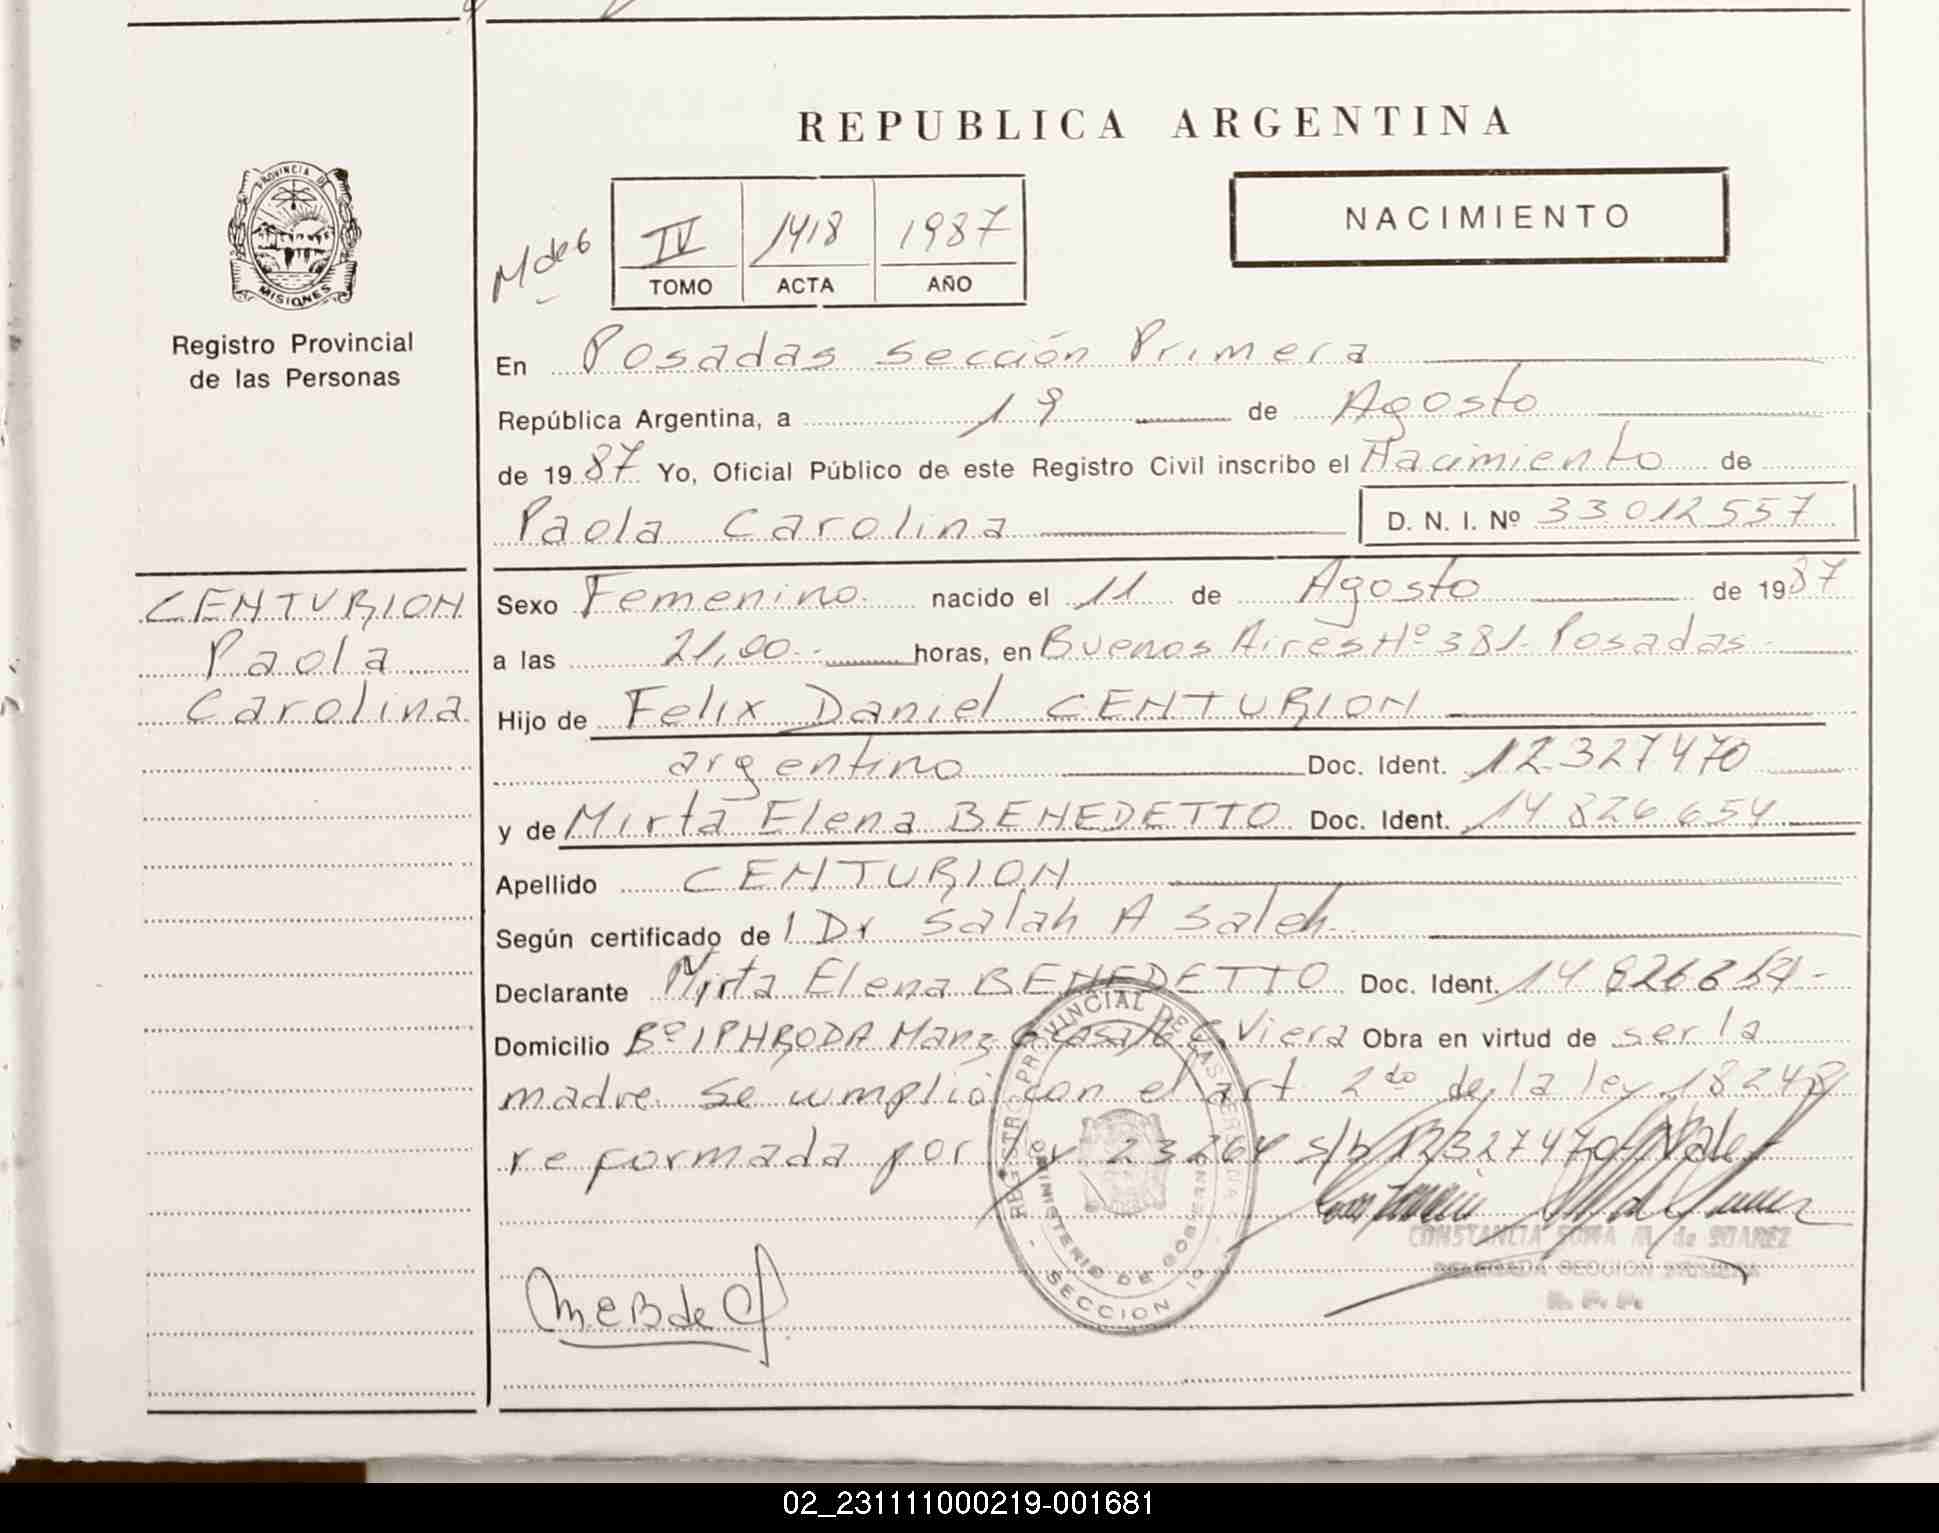 REPUBLICA ARGENTINA
PROVINCIA DE
MISIONES
Registro Provincial
de las Personas
NACIMIENTO
IV 1418 1987
TOMO ACTA AÑO
En Posadas sección Primera
República Argentina, a 19 de Agosto
de 1987 Yo, Oficial Público de este Registro Civil inscribo el Nacimiento de
Paola Carolina D. N. I. Nº 33012557
CENTURION
Paola
Carolina
Sexo Femenino nacido el 11 de Agosto de 1987
a las 21,00 horas, en Buenos Aires Nº 381 - Posadas -
Hijo de Felix Daniel CENTURION
argentino Doc. Ident. 12327470
y de Mirta Elena BENEDETTO Doc. Ident. 14 826 654
Apellido CENTURION
Según certificado de l Dr Salah A Saleh
Declarante Mirta Elena BENEDETTO Doc. Ident. 14 826 654 -
Domicilio Bº IPHRODA Manz Casa Viera Obra en virtud de ser la
madre. Se cumplió con el art 2do de la ley 18248
reformada por ley 23264 s/b 12327470 Vale
REGISTRO PROVINCIAL DE LAS PERSONAS
MINISTERIO DE GOBIERNO
SECCION 1º
CONSTANCIA SUNFA M. de SUAREZ
DELEGADA SECCION PRIMERA
R. P. P.
MEB de C
02_231111000219-001681